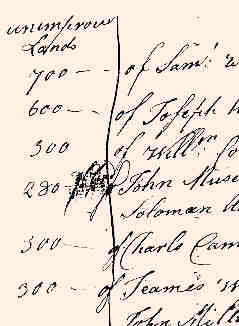 unimprov
Lands
700 - - of Sam:
600 - of Joseph
300 of Willm
280 - John Muse
Soloman
300 - of Charls Cam
300 - of Jeames
John Mill